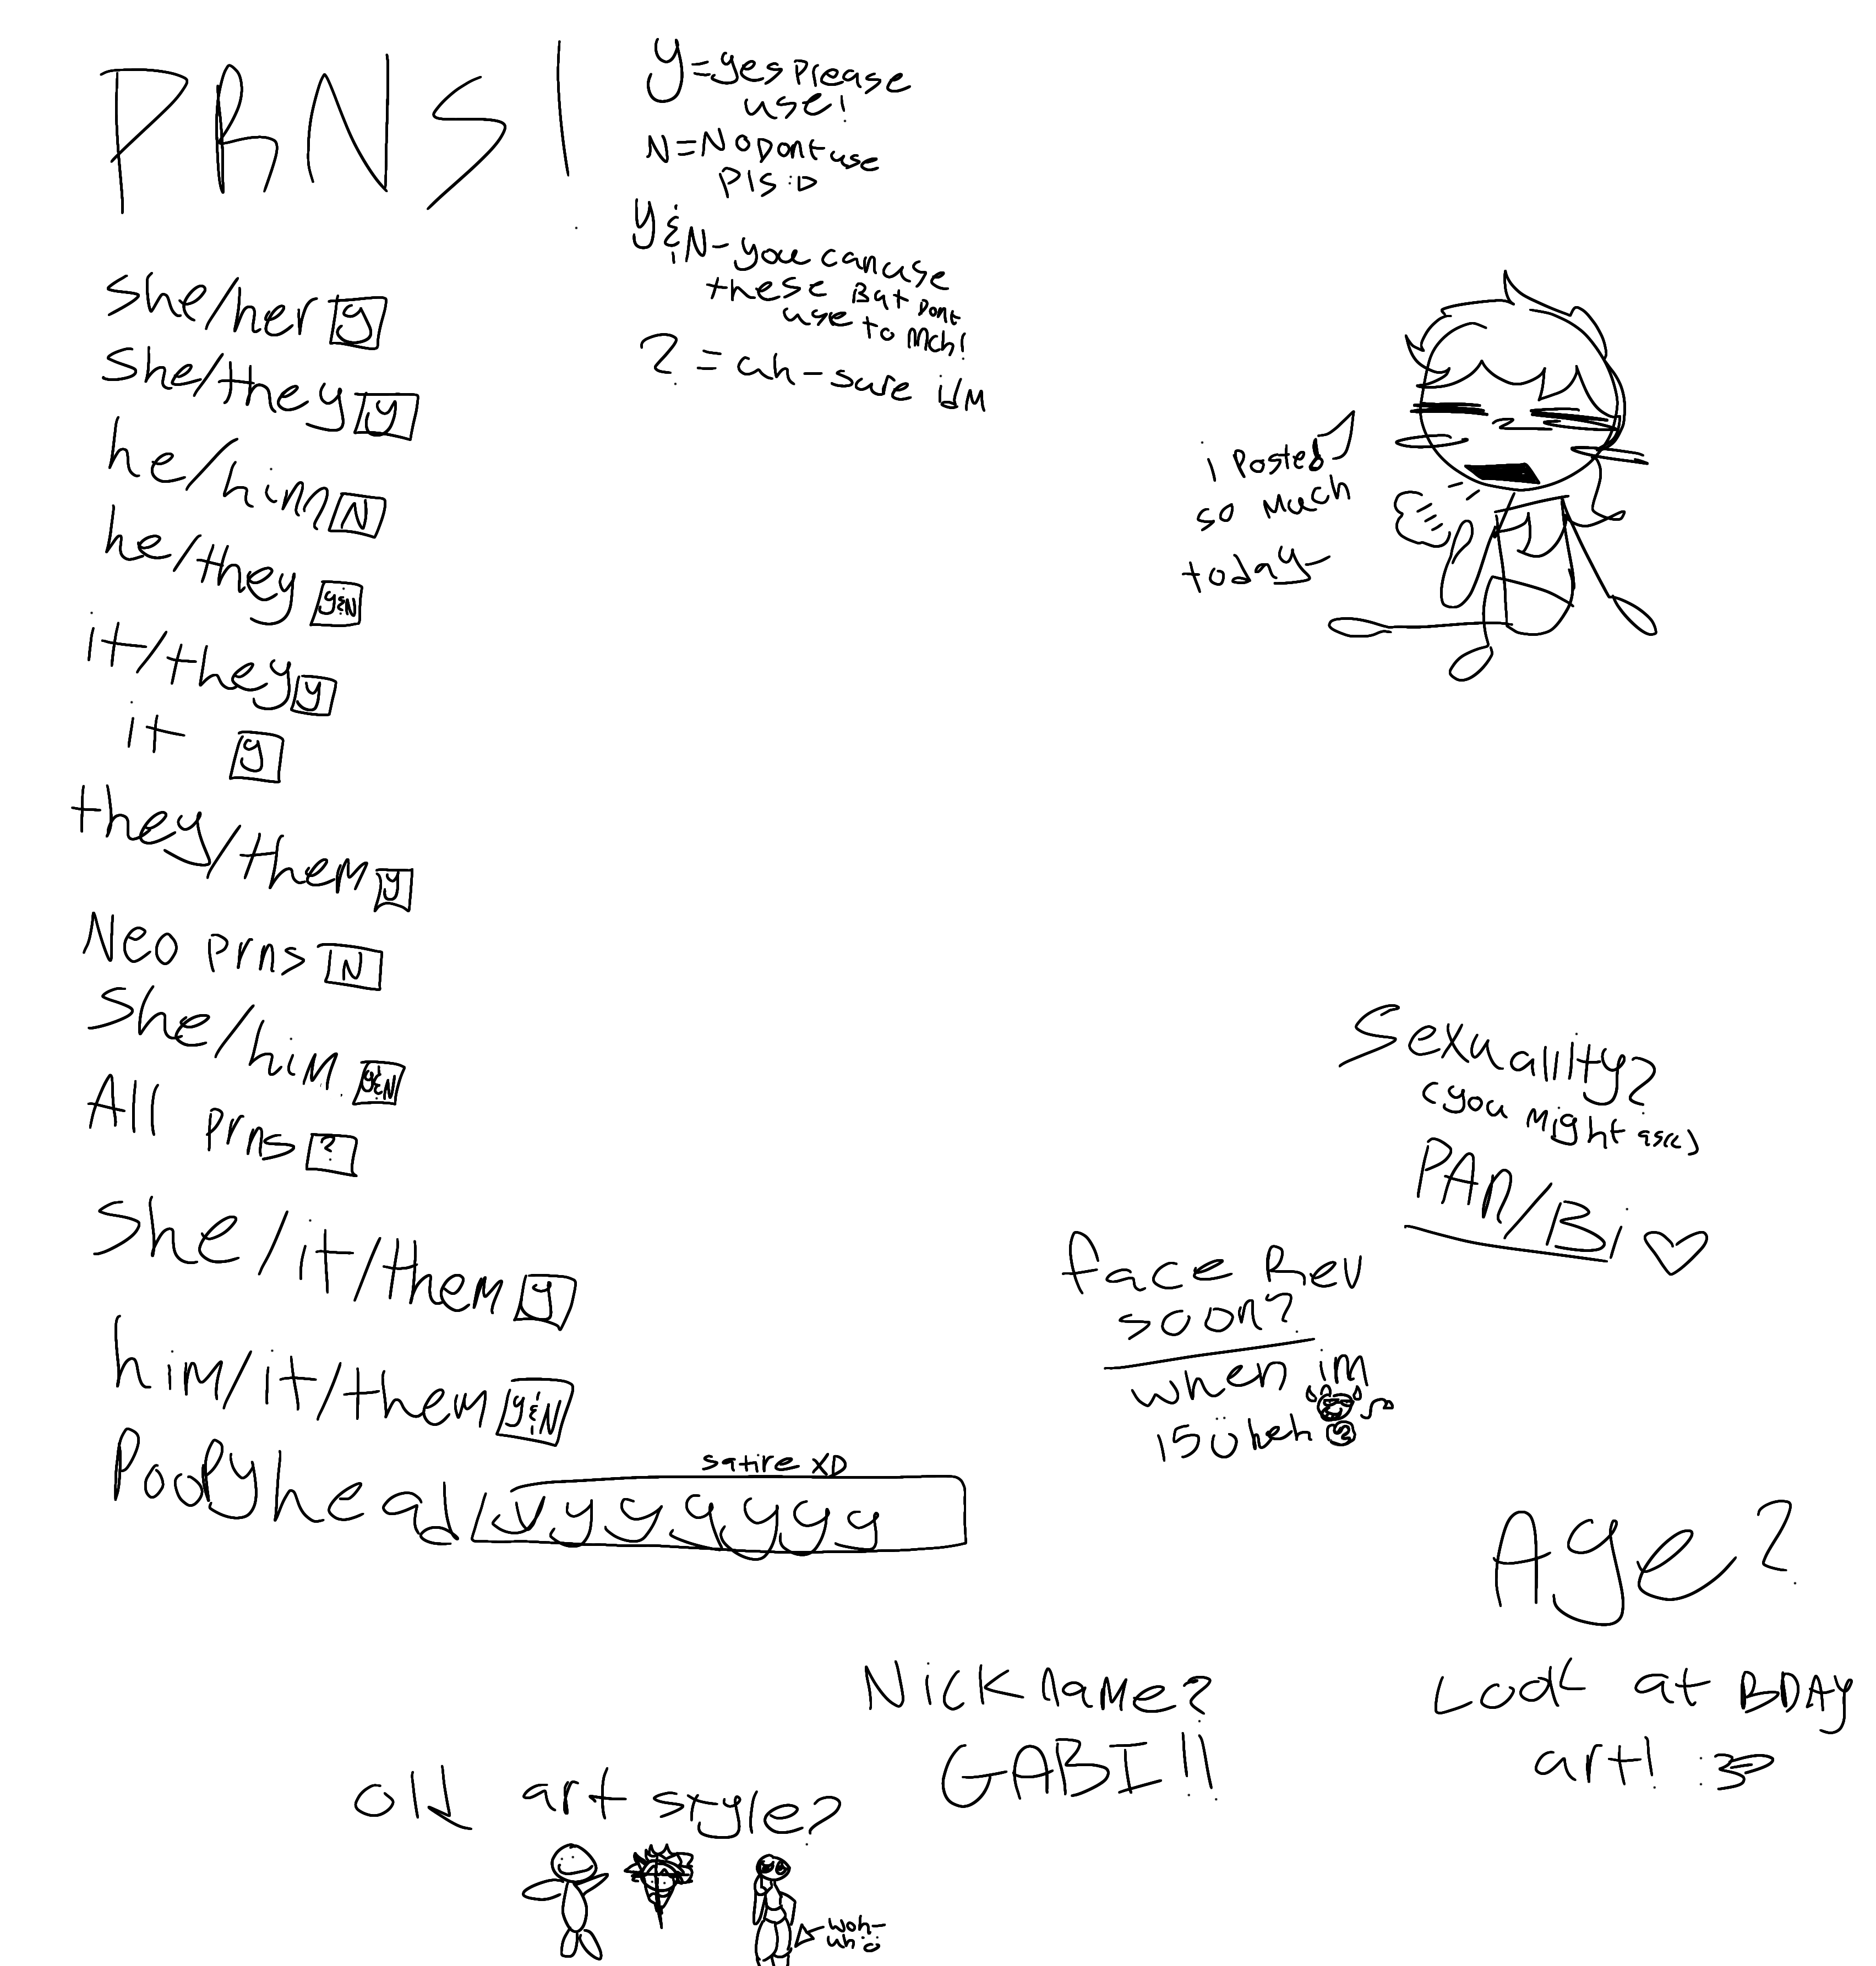 PRNS!
y=yes Please
use!
N=No Dont use
Pls :D
y&N-you can use
these But Dont
use to Mch!
? = uh-sure idM
she/her y
she/they y
he/him N
he/they y&N
it/they y
it y
they/them y
Neo prns N
she/him y&N
All prns ?
she/it/them y
him/it/them y&N
Poopyhead yyyyyyy
satire XD
i Posted
so Much
today-
Sexuallity?
(you Might ask)
PAN/Bi ♡
face Rev
soon?
when im
15 Ü heh
Age?
Look at BDAY
art! :3
Nickname?
GABI!!
old art style?
woh-
uh